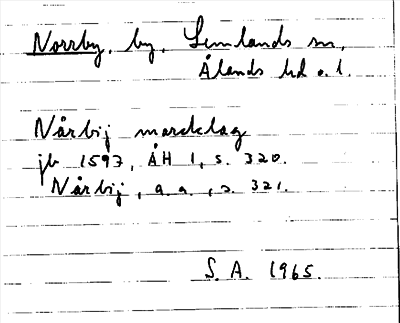 Norrby, by, Lemlands sn,
Ålands hd o. l.
Nårbij marcklag
jb 1597, ÅH 1, s. 320.
Nårbij, a. a., s. 321.
S. A. 1965.